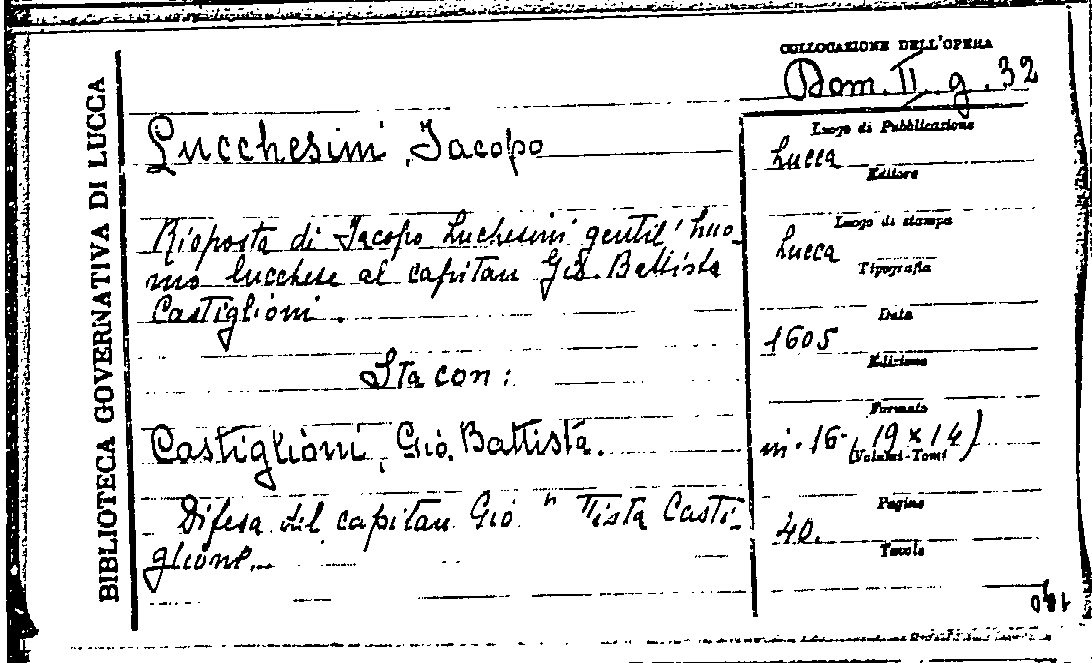 BIBLIOTECA GOVERNATIVA DI LUCCA
COLLOCAZIONE DELL'OPERA
Dom. II. g. 32
Lucchesini, Jacopo
Risposta di Jacopo Luchesini gentil'huo-
mo lucchese al capitan Gio. Battista
Castiglioni.
Sta con:
Castiglioni, Gio. Battista.
Difesa del capitan Gio " Tista Casti-
glione...
Luogo di Pubblicazione
Lucca
Editore
Luogo di stampa
Lucca
Tipografia
Data
1605
Edizione
Formato
in. 16. (19 x 14)
Volumi-Tomi
Pagine
40.
Tavole